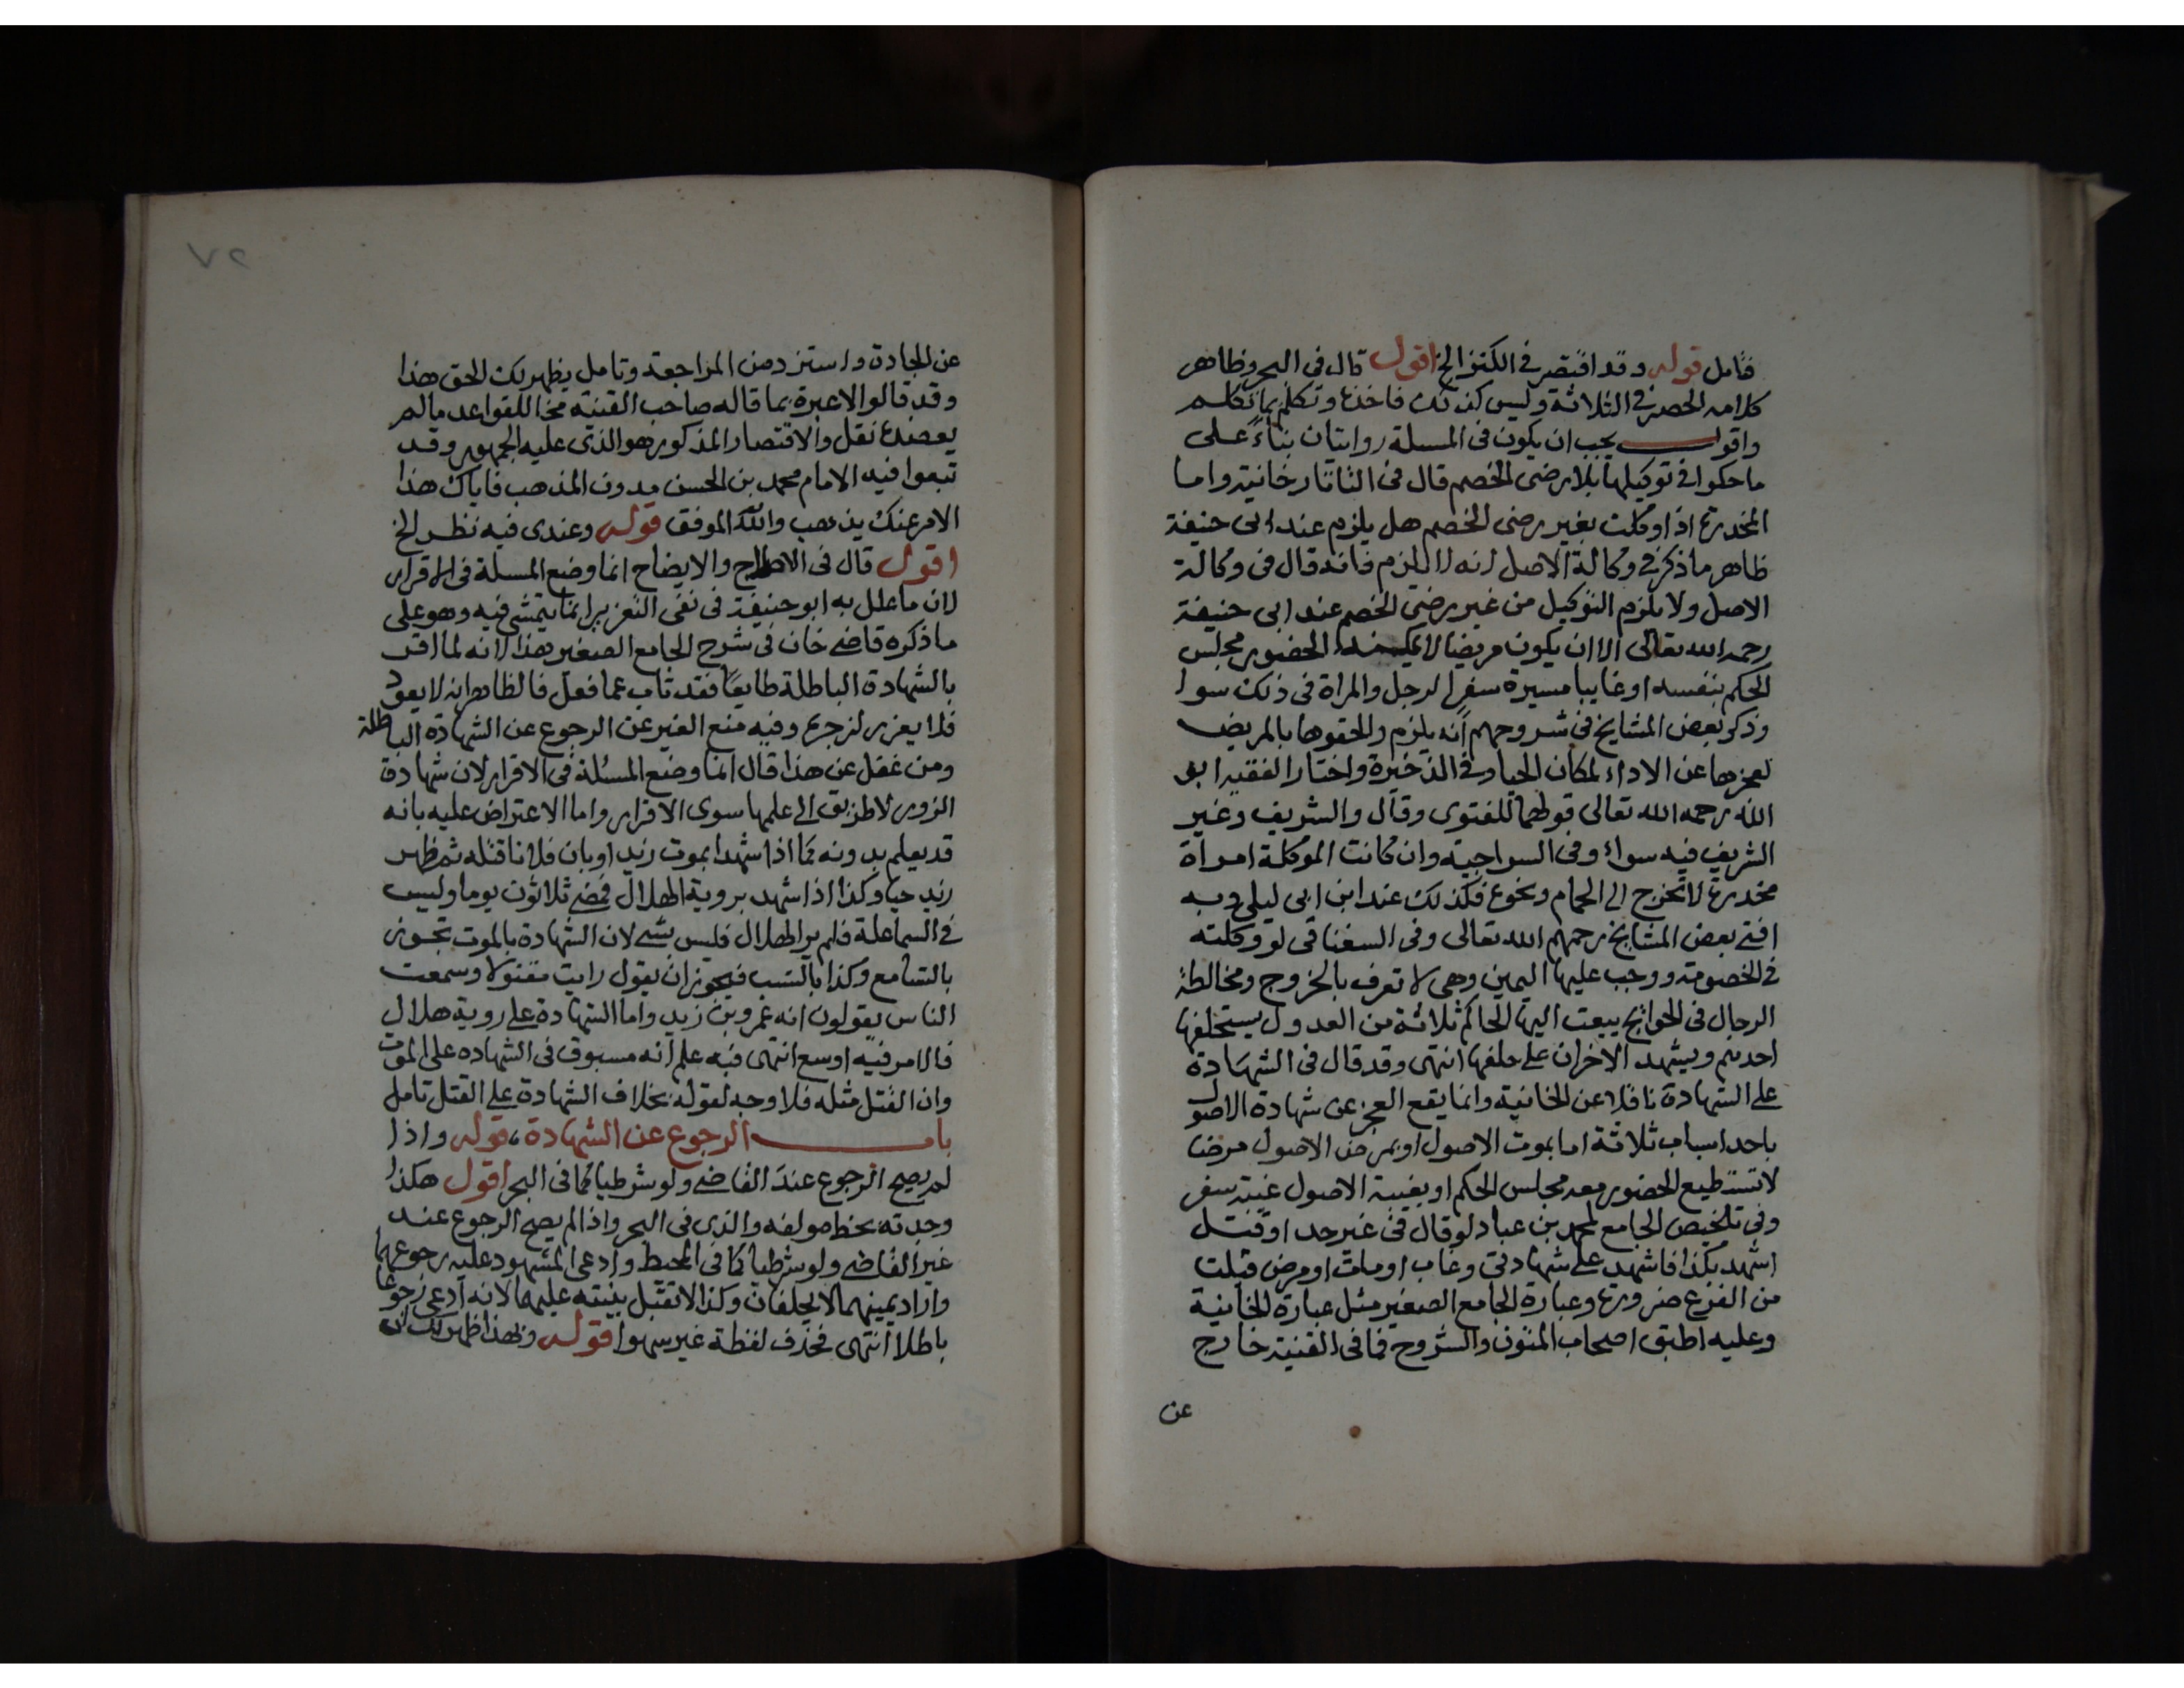 فتامل قوله وقد اقتصر في الكنز الخ اقول قال في البحر وظاهر
كلامه الحصر في الثلاثة وليس كذلك فاخذها وتكلم بما تكلم
واقول يجب ان يكون في المسلة روايتان بناءً على
ما حكوا في توكيلها بلا رضى الخصم قال في التاتارخانية واما
المخدرة اذا وكلت بغير رضى الخصم هل يلزم عند ابى حنيفة
ظاهر ما ذكر في وكالة الاصل انه لا يلزم فانه قال في وكالة
الاصل ولا يلزم التوكيل من غير رضى الخصم عند ابى حنيفة
رحمه الله تعالى الا ان يكون مريضا لا يمكنه الحضور مجلس
الحكم بنفسه او غايبا مسيرة سفر الرجل والمراة في ذلك سوا
وذكر بعض المشايخ في شروحهم أنه يلزم والحقوها بالمريض
لعجزها عن الاداء لمكان الحيا وفي الذخيرة واختار الفقيه ابو
الله رحمه الله تعالى قولهما للفتوى وقال والشريف وغير
الشريف فيه سواء وفي السراجية وان كانت الموكلة امراة
مخدرة لا تخرج الى الحمام ونحوه فكذلك عند ابن ابى ليلى وبه
افتى بعض المشايخ رحمهم الله تعالى وفي السغناقى لو وكلته
في الخصومة ووجب عليها اليمين وهى لا تعرف بالخروج ومخالطة
الرجال في الحوائج يبعث اليها الحاكم ثلاثة من العدول يستحلفها
احدهم ويشهد الاخران على حلفها انتهى وقد قال في الشهادة
على الشهادة ناقلا عن الخانية وانما يقع العجز عن شهادة الاصول
باحد اسباب ثلاثة اما بموت الاصول او بمرض الاصول مرضا
لا تستطيع الحضور معه مجلس الحكم او بغيبة الاصول غيبة سفر
وفي تلخيص الجامع لمحمد بن عباد لو قال في غير حد او قتل
اشهد بكذا فاشهد على شهادتى وغاب او مات او مرض قبلت
من الفرع ضرورة وعبارة الجامع الصغير مثل عبارة الخانية
وعليه اطبق اصحاب المتون والشروح فما في القنية خارج
عن
٧٢
عن الجادة واستزد من المراجعة وتامل يظهر لك الحق هذا
وقد قالوا لا عبرة بما قاله صاحب القنية مخالفا للقواعد ما لم
يعضده نقل والاقتصار المذكور هو الذى عليه الجمهور وقد
تبعوا فيه الامام محمد بن الحسن مدون المذهب فاياك هذا
الامر عنك يذهب والله الموفق قوله وعندى فيه نظر الخ
اقول قال في الاصلاح والايضاح انما وضع المسلة في الاقرار
لان ما علل به ابو حنيفة في نفى التعزير انما يتمشى فيه وهو على
ما ذكره قاضى خان في شرح الجامع الصغير هذا لانه لما اقر
بالشهادة الباطلة طايعًا فقد تاب عما فعل فالظاهر انه لا يعود
فلا يعزر لزجره وفيه منع الغير عن الرجوع عن الشهادة الباطلة
ومن غفل عن هذا قال انما وضع المسئلة في الاقرار لان شهادة
الزور لا طريق الى علمها سوى الاقرار واما الاعتراض عليه بانه
قد يعلم بدونه كما اذا شهدا بموت زيد او بان فلانا قتله ثم ظهر
زيد حيا وكذا اذا شهد بروية الهلال فمضى ثلاثون يوما وليس
في السما علة فلم ير الهلال فليس بشى لان الشهادة بالموت تجوز
بالتسامع وكذا بالنسب فيجوز ان يقول رايت مقتولا وسمعت
الناس يقولون انه عمرو بن زيد واما الشهادة على روية هلال
فالامر فيه اوسع انتهى فبه علم أنه مسبوق في الشهاده على الموت
وان القتل مثله فلا وجه لقوله بخلاف الشهادة على القتل تامل
باب الرجوع عن الشهادة، قوله واذا
لم يصح الرجوع عند القاضى ولو شرطيا كما في البحر اقول هكذا
وجدته بخط مولفه والذى في البحر واذا لم يصح الرجوع عند
غير القاضى ولو شرطيا كما في المحيط وادعى المشهود عليه رجوعهما
واراد يمينهما لا يحلفان وكذا لا تقبل بينته عليهما لانه ادعى رجوعا
باطلا انتهى فحذف لفظة غير سهوا قوله وبهذا ظهر لك ان